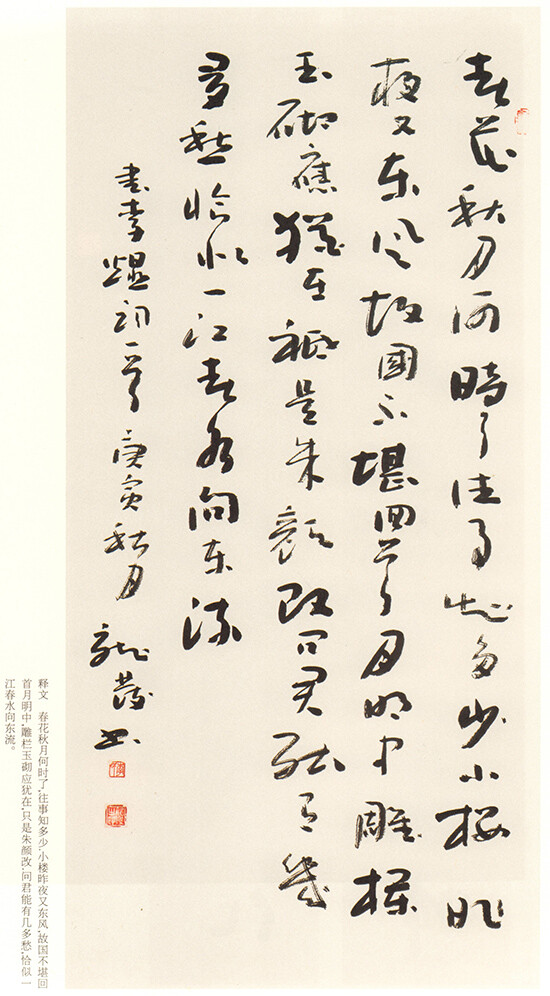 春花秋月何時了往事知多少小樓昨
夜又東風故國不堪回首月明中雕欄
玉砌應猶在祇是朱顏改問君能有幾
多愁恰似一江春水向東流
書李煜詞一首 庚寅秋月 書
释文　春花秋月何时了,往事知多少.小楼昨夜又东风,故国不堪回
首月明中.雕栏玉砌应犹在,只是朱颜改.问君能有几多愁,恰似一
江春水向东流。